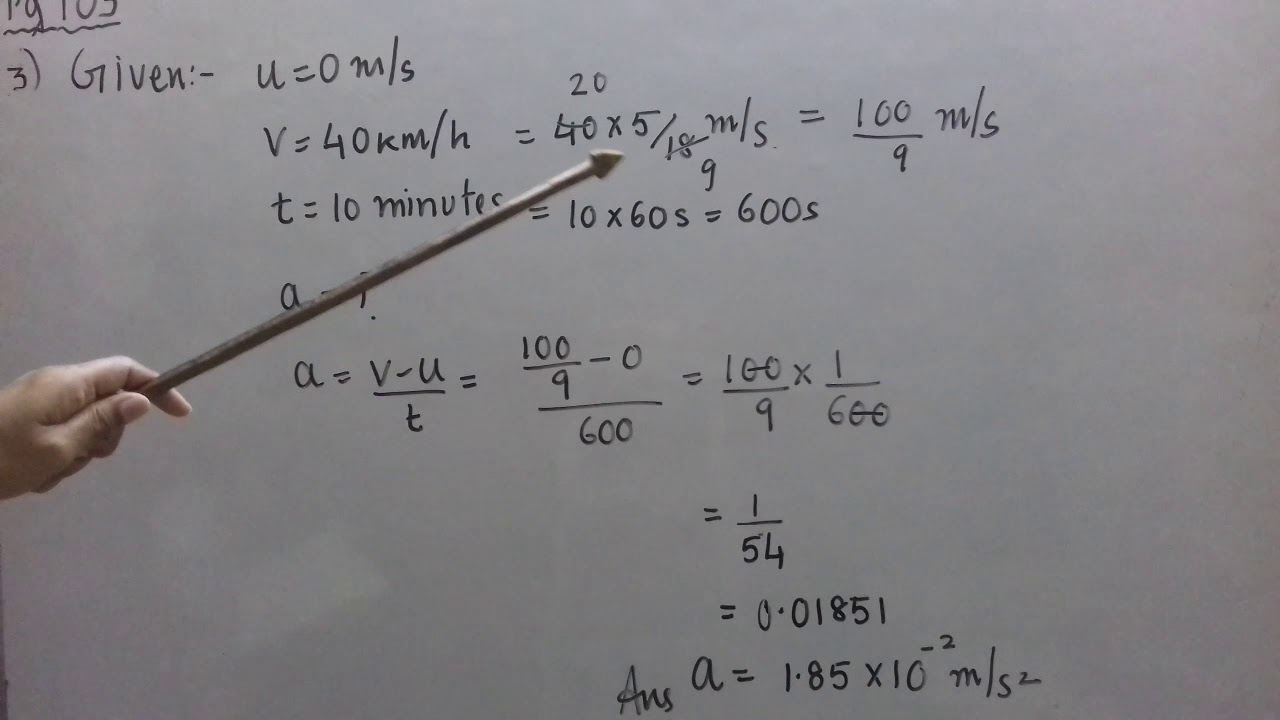 Pg 103
3) Given:- u = 0 m/s
v = 40 km/h = 40 20 × 5/18 9 m/s = 100/9 m/s
t = 10 minutes = 10 × 60 s = 600 s
a = ?
a = v-u/t = 100/9 - 0/600 = 100/9 × 1/600
= 1/54
= 0.01851
Ans a = 1.85 × 10⁻² m/s²